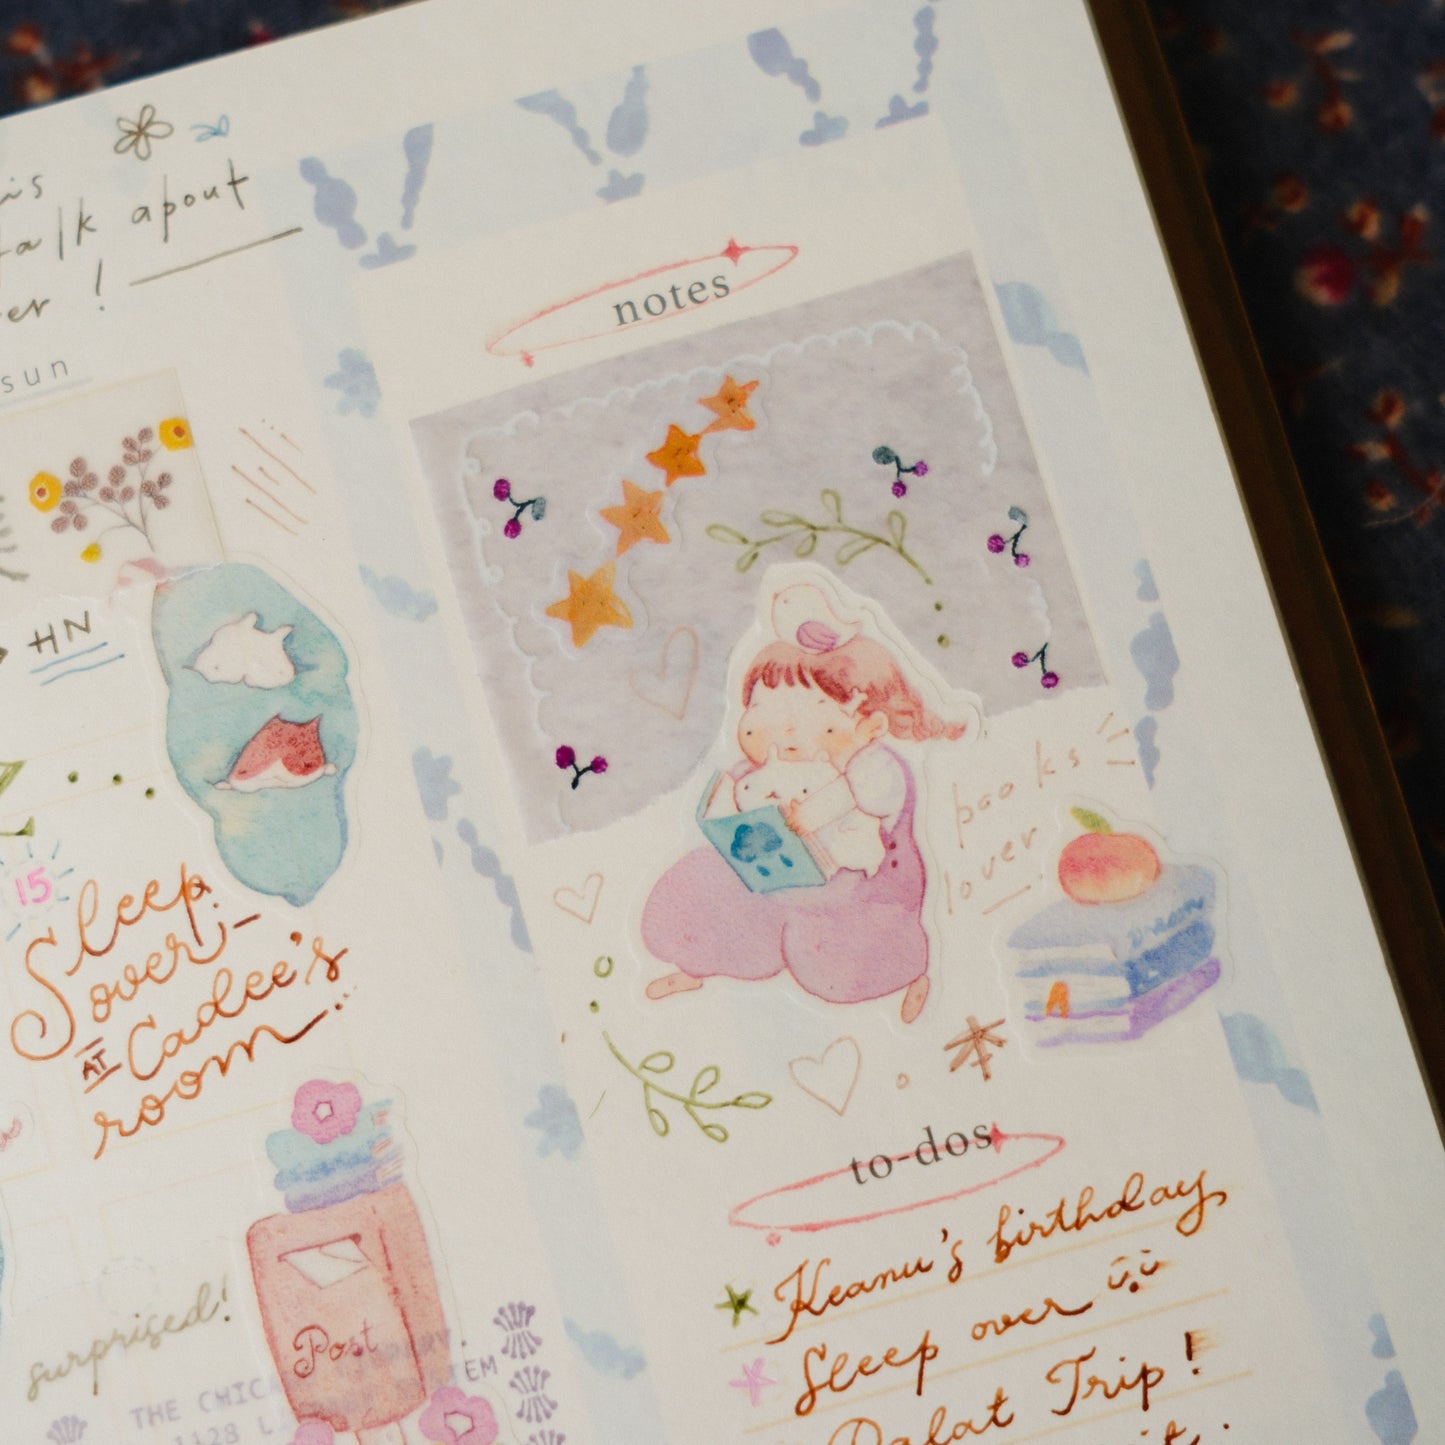 talk apout
!
sun
HN
15
Sleep
over
AT Cadee's
room
surprised!
Post
THE CHIC
1128 L
notes
books
lover
Dream
to-dos
Keanu's birthday
Sleep over
Dalat Trip!